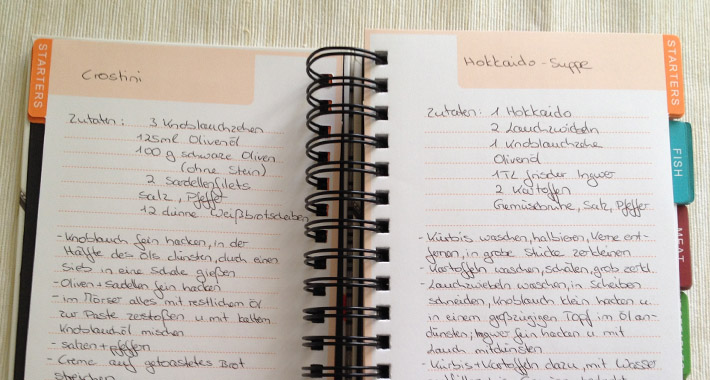 STARTERS
Crostini
Zutaten: 3 Knoblauchzehen
125ml Olivenöl
100 g schwarze Oliven
(ohne Stein)
2 Sardellenfilets
Salz, Pfeffer
12 dünne Weißbrotscheiben
- Knoblauch fein hacken, in der
Hälfte des Öls dünsten, durch einen
Sieb in eine Schale gießen
- Oliven + Sardellen fein hacken
- im Mörser alles mit restlichem Öl
zur Paste zerstoßen u. mit kaltem
Knoblauchöl mischen
- salzen + pfeffern
- Creme auf getoastetes Brot
streichen
STARTERS
FISH
MEAT
Hokkaido - Suppe
Zutaten: 1 Hokkaido
2 Lauchzwiebeln
1 Knoblauchzehe
Olivenöl
1 TL frischer Ingwer
2 Kartoffeln
Gemüsebrühe, Salz, Pfeffer
- Kürbis waschen, halbieren, Kerne ent-
fernen, in grobe Stücke zerkleinern
- Kartoffeln waschen, schälen, grob zerkl.
- Lauchzwiebeln waschen, in Scheiben
schneiden, Knoblauch klein hacken u.
in einem großzügigen Topf im Öl an-
dünsten; Ingwer fein hacken u. mit
Lauch mitdünsten
- Kürbis + Kartoffeln dazu, mit Wasser